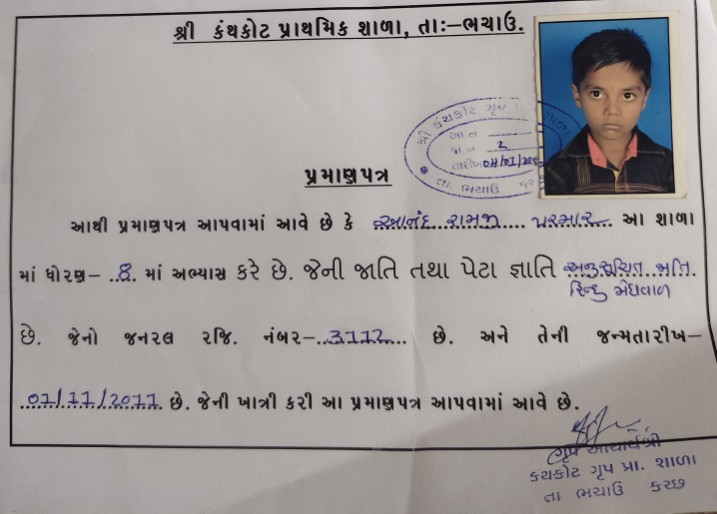 શ્રી કંથકોટ પ્રાથમિક શાળા, તાઃ–ભચાઉ.
શ્રી કંથકોટ ગૃપ
શાળા
આ.ન
જા.ન 2
તારીખ 04/01/202
તા. ભચાઉ
પ્રમાણપત્ર
આથી પ્રમાણપત્ર આપવામાં આવે છે કે આનંદ રામજી પરમાર આ શાળા
માં ધોરણ– 8 માં અભ્યાસ કરે છે. જેની જાતિ તથા પેટા જ્ઞાતિ અનુસૂચિત જાતિ
હિન્દુ મેઘવાળ
છે. જેનો જનરલ રજિ. નંબર– 3112 છે. અને તેની જન્મતારીખ–
01/11/2011 છે. જેની ખાત્રી કરી આ પ્રમાણપત્ર આપવામાં આવે છે.
ગૃપ આચાર્યશ્રી
કંથકોટ ગૃપ પ્રા. શાળા
તા ભચાઉ કચ્છ